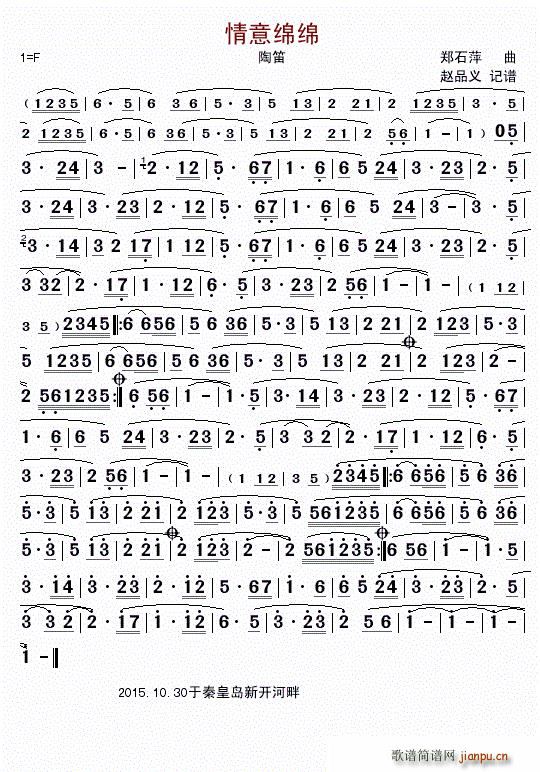 情意绵绵
1=F 陶笛 郑石萍 曲
赵品义 记谱
( 1235 | 6· 5 | 6 36 | 5· 35 | 13 | 2 21 | 2 1235 | 3· 5
2 1235 | 6· 56 | 6 36 | 5· 35 | 13 | 2 21 | 2 56 | 1 - | 1 - ) 05 |
3· 24 | 3 - | 2· 12 | 5· 67 | 1· 6 | 6 5 24 | 3· 23 | 2· 5 |
3· 24 | 3· 23 | 2· 12 | 5· 67 | 1· 6 | 6 5 24 | 3 - | 3· 5 |
3· 14 | 3 2 17 | 1 12 | 5· 67 | 1· 6 | 6 5 24 | 3· 23 | 2· 5 |
3 32 | 2· 17 | 1· 12 | 6· 5 | 3· 23 | 2 56 | 1 - | 1 - | ( 1 12 |
3 5 ) 2345 |: 6 656 | 5 6 36 | 5· 3 | 5 13 | 2 221 | 2 123 | 5· 3 |
5 1235 | 6 656 | 5 6 36 | 5· 3 | 5 13 | 2 221 | 2 123 | 2 - |
2 561235 :| 6 56 | 1 - | 1· 5 | 3· 14 | 3· 23 | 2· 12 | 5· 67 |
1· 6 | 6 5 24 | 3· 23 | 2· 5 | 3 32 | 2· 17 | 1· 12 | 6· 5 |
3· 23 | 2 56 | 1 - | 1 - | ( 1 12 | 3 5 ) | 2345 |: 6 656 | 5 6 36 |
5· 3 | 5 13 | 2 221 | 2 123 | 5· 3 | 5 561235 | 6 656 | 5 6 36 |
5· 3 | 5 13 | 2 221 | 2 123 | 2 - | 2 561235 :| 6 56 | 1 - | 1· 5 |
3· 14 | 3· 23 | 2· 12 | 5· 67 | 1· 6 | 6 5 24 | 3· 23 | 2· 5 |
3 32 | 2· 17 | 1· 12 | 6· 5 | 3· 23 | 2 56 | 1 - | 1 - |
1 - ‖
2015.10.30于秦皇岛新开河畔
歌谱简谱网 jianpu.cn